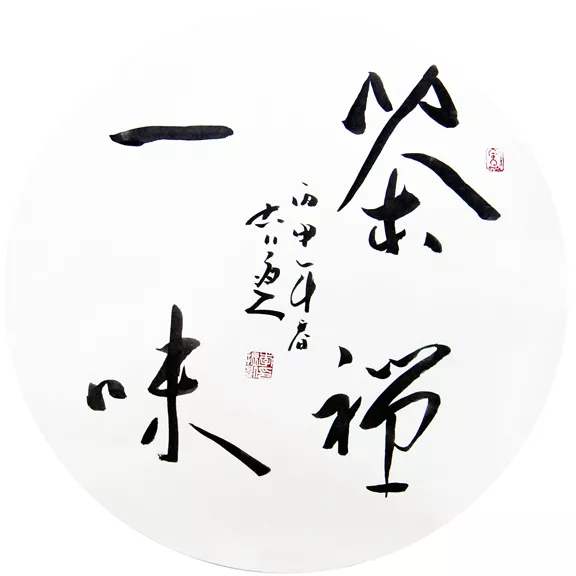 茶禅
一味
丙申年春